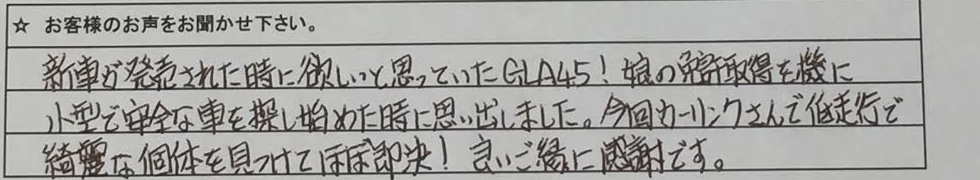 ☆ お客様のお声をお聞かせ下さい。
新車が発売された時に欲しいと思っていたGLA45！娘の免許取得を機に
小型で安全な車を探し始めた時に思い出しました。今回カーリンクさんで低走行で
綺麗な個体を見つけてほぼ即決！良いご縁に感謝です。